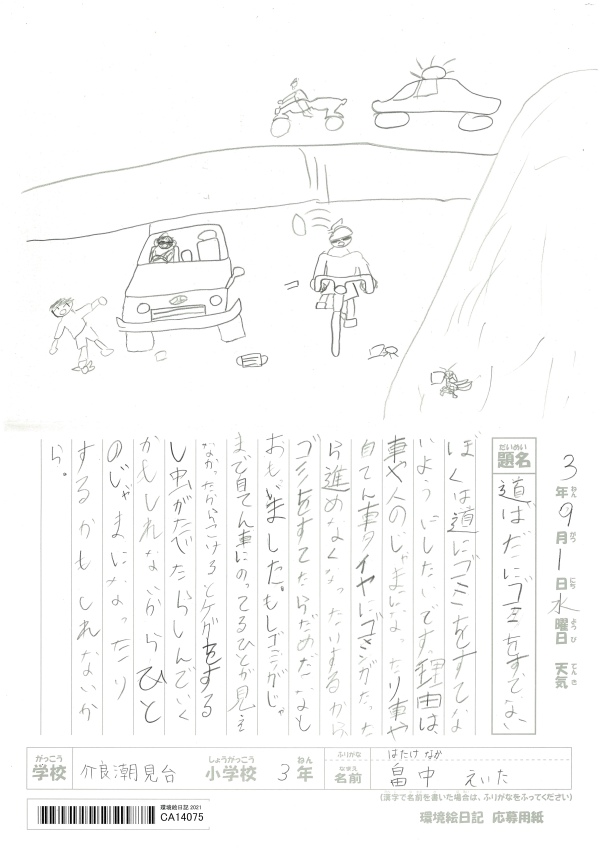 3年9月1日水曜日 天気
ねん がつ にち ようび てんき
だいめい
題名
道ばたにゴミをすてない
ぼくは道にゴミをすてな
いようにしたいです。理由は、
車や人のじゃまになったり車や
自てん車のタイヤにゴミがたった
ら進めなくなったりするから
ゴミをすてたらだめだなとも
おもいました。もしゴミがじゃ
まで自てん車にのってるひとが見え
なかったからこけるとケガをする
し虫がたべたらしんでいく
かもしれないからひと
のじゃまになったり
するかもしれないか
ら。
がっこう
学校
介良潮見台
しょうがっこう
小学校
3年
ねん
ふりがな
はたけ なか
なまえ
名前
畠中 えいた
(漢字で名前を書いた場合は、ふりがなをふってください)
環境絵日記 応募用紙
環境絵日記 2021
CA14075